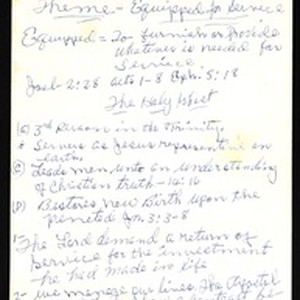 Theme - Equipped for Service
Equipped = To furnish or Provide
Whatever is needed for
Service
Joel-2:28 acts 1-8 Eph. 5:18
The Holy Ghost
(a) 3rd Person in the Trinity.
Serves as Jesus representive on
Earth.
(C) Leads men unto an understanding
of Christian truth - 16:16
(D) Bestores New Birth upon the
Jn. 3:3-8
1- The Lord demand a return of
Service for the investment
he had made in life
2- we manage our lives. The Apostel